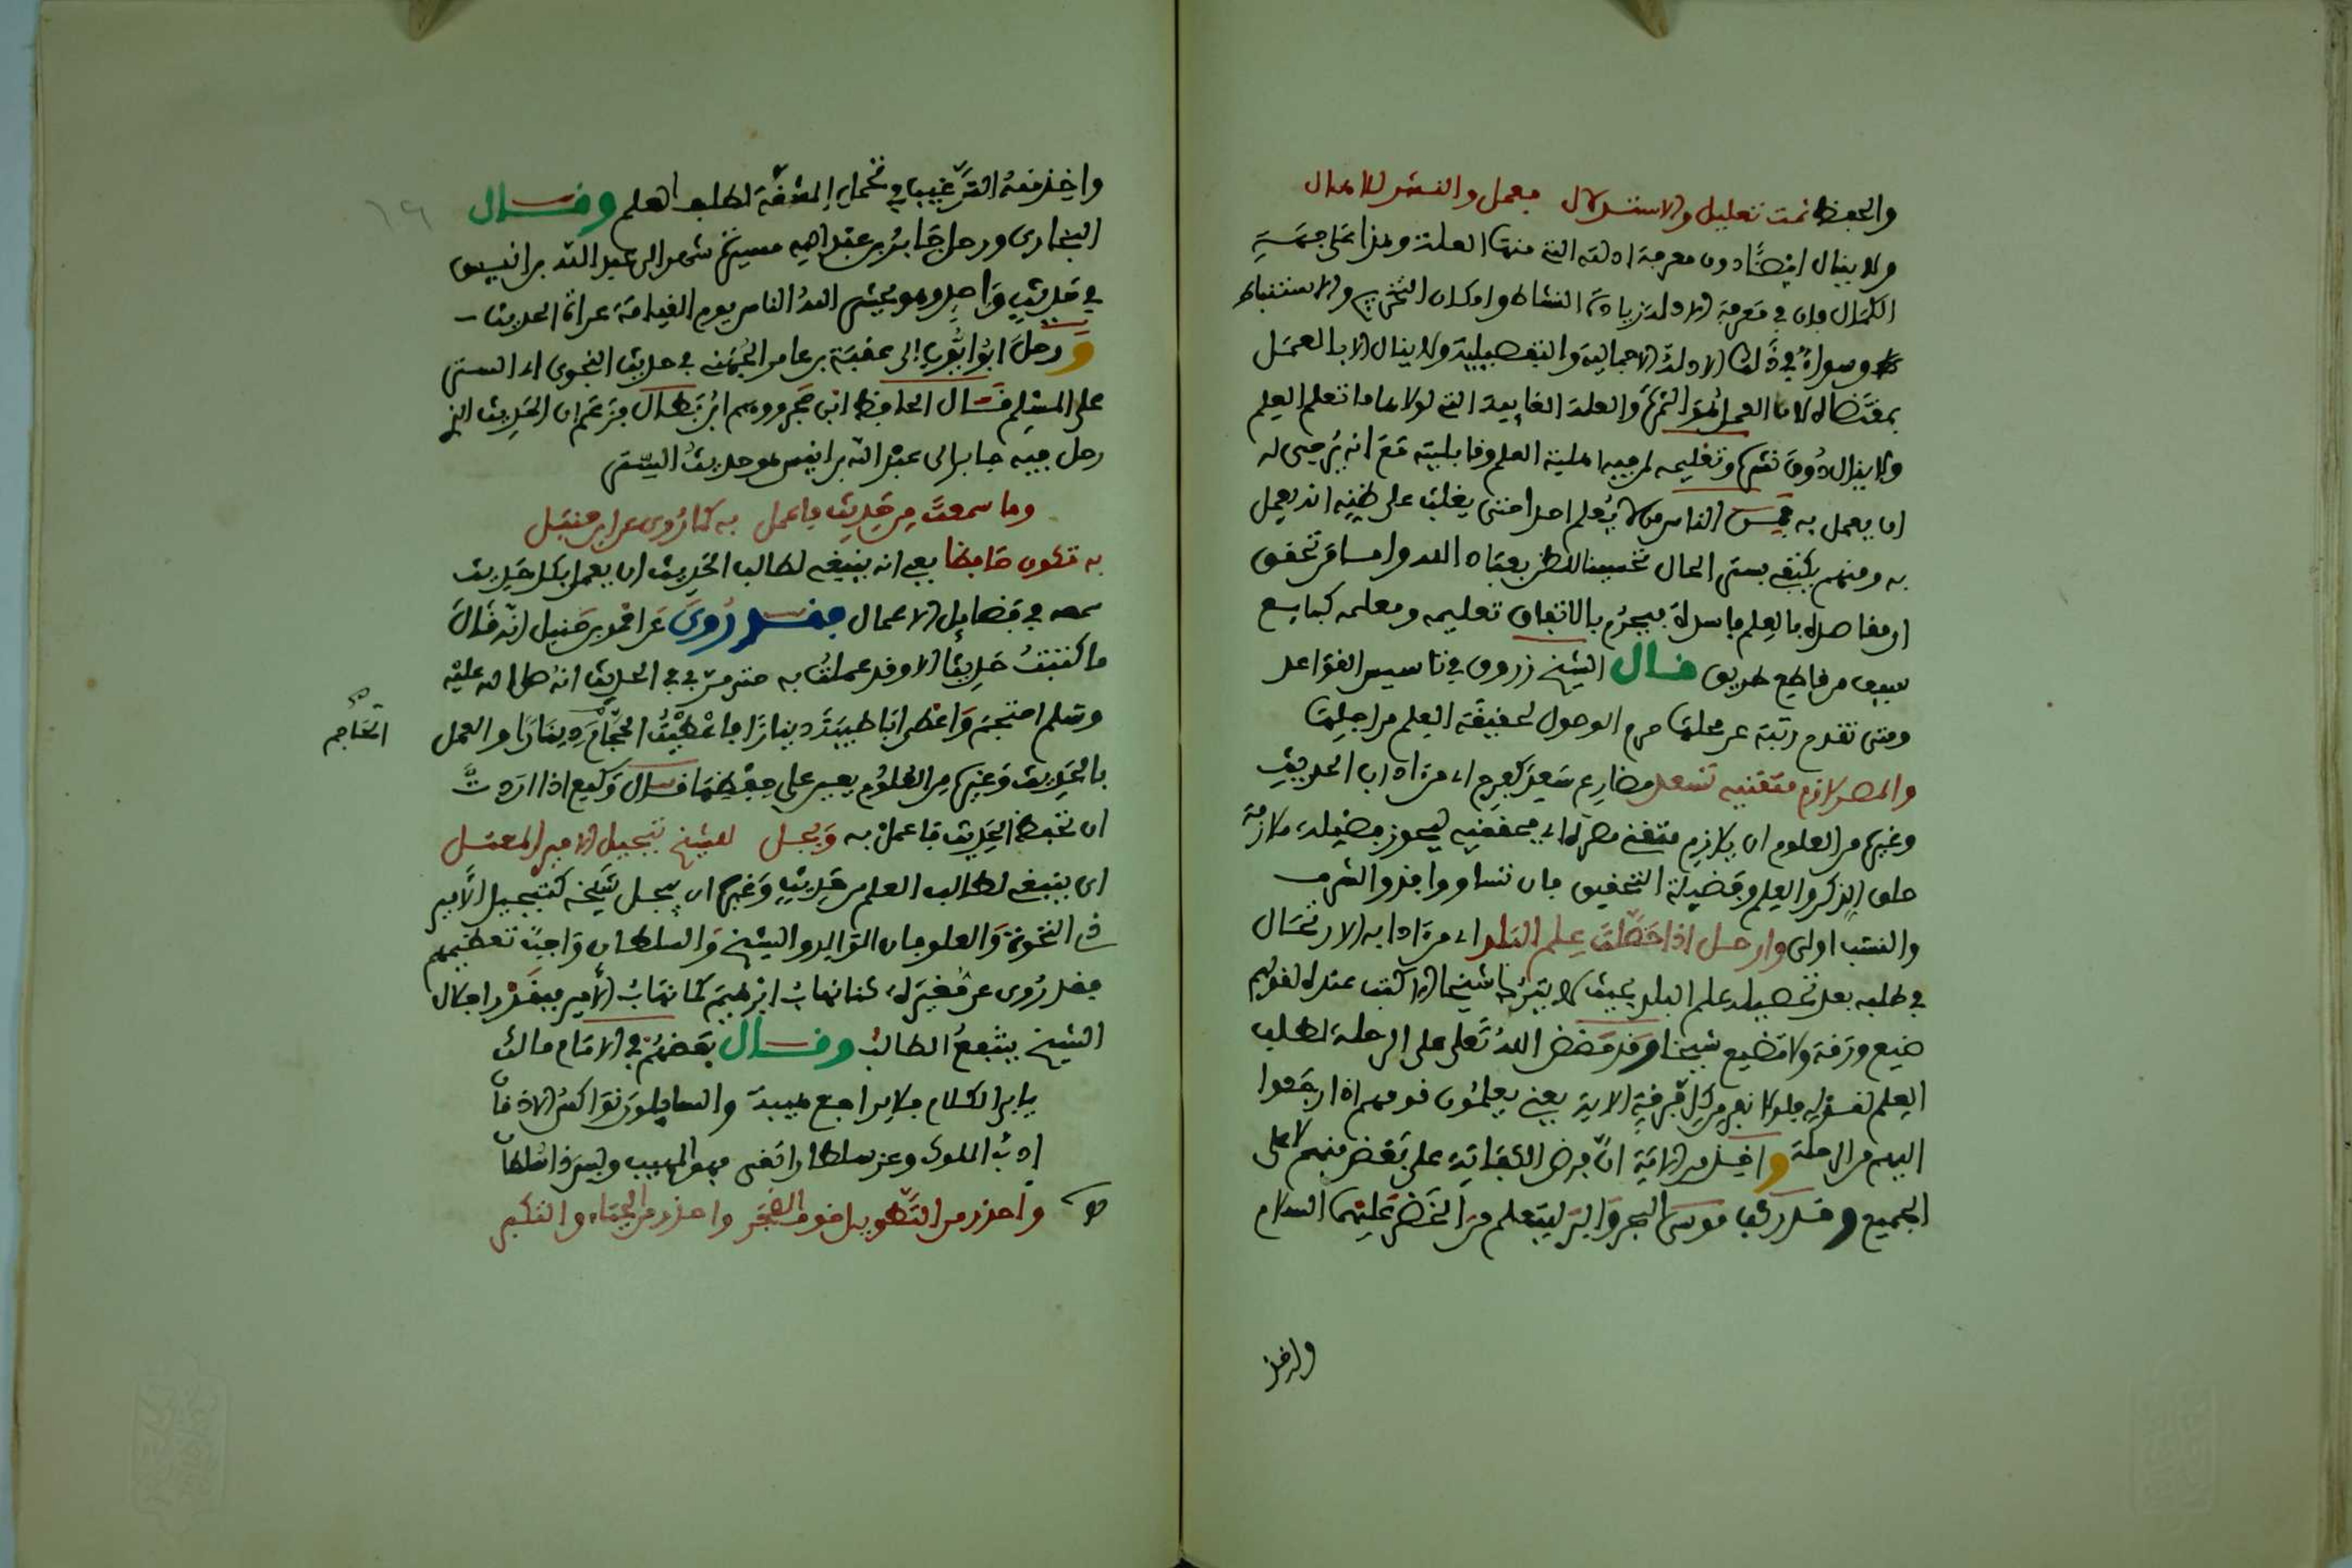 والحفظ ثمت تعليل والاستدلال فعمل والنشر للامال
ولا ينال ايضا دون معرفة ادلته التي منها العلة وهذا على جهة
الكمال فان في معرفة الادلة زيادة النشاط وامكان التخريج والاستنباط
وسواء في ذلك الادلة الاجمالية والتفصيلية ولا ينال الا بالعمل
بمقتضاه لان العمل هو الثمرة والعلة الغايية التي لولاها ما تعلم العلم
ولا ينال دون نشره وتعليمه لمن فيه اهلية العلم وقابليته مع انه يرجى له
ان يعمل به فمن الناس من لا يعلم احدا حتى يغلب على ظنه انه يعمل
به ومنهم يكتفي بستر الحال تحسينا للظن بعباد الله واما من تحقق
ان مقاصده بالعلم فاسدة فيحرم بالاتفاق تعليمه ومعلمه كبايع
سيف من قاطع طريق قال الشيخ زروق في تاسيس القواعد
ومتى تقدم رتبة عن محلها حرم الوصول لحقيقة العلم من اجلها
والمصر لازم متقنيه تسعد مضارع سعد كفرح اي من اداب الحديث
وغيره من العلوم ان يلازم متقني مصره اي محققيه ليحوز فضيلة ملازمة
حلق الذكر والعلم وفضيلة التحقيق فان تساووا فذو الشرف
والنسب اولى وارحل اذا حصلت علم البلد اي من ادابه الارتحال
في طلبه بعد تحصيله علم البلد بحيث لا يترك شيخا الا كتب عنده لقولهم
ضيع ورقة ولا تضيع شيخا وقد حض الله تعلى على الرحلة لطلب
العلم لقوله فلولا نفر من كل فرقة الاية يعني يعلمون قومهم اذا رجعوا
اليهم من الرحلة واخذ من الاية ان فرض الكفاية على بعض منهم لا على
الجميع وقد ركب موسى البحر والبر ليتعلم من الخضر عليهما السلام
واخذ
واخذ منه الترغيب في تحمل المشقة لطلب العلم وقال
البخاري ورحل جابر بن عبد الله مسيرة شهر الى عبد الله بن انيس
في حديث واحد وهو يحشر الله الناس يوم القيامة عراة الحديث
ورحل ابو ايوب الى عقبة بن عامر الجهني في حديث النجوى اي الستر
على المسلم قال الحافظ ابن حجر ووهم ابن بطال فزعم ان الحديث الذي
رحل فيه جابر الى عبد الله بن انيس هو حديث الستر
وما سمعت من حديث فاعمل به كما روي عن ابن حنبل
به تكون حافظا يعني انه ينبغي لطالب الحديث ان يعمل بكل حديث
سمعه في فضايل الاعمال فقد روي عن احمد بن حنبل انه قال
ما كتبت حديثا الا وقد عملت به حتى مر بي في الحديث انه صلى الله عليه
وسلم احتجم واعطى ابا طيبة دينارا فاعطيت الحجام دينارا والعمل
الحاجم
بالحديث وغيره من العلوم يعين على حفظها قال وكيع اذا اردت
ان تحفظ الحديث فاعمل به وبجل للشيخ تبجيل الامير المعتل
اي ينبغي لطالب العلم من حديث وغيره ان يبجل شيخه كتبجيل الامير
في النخوة والعلو فان الوالد والشيخ والسلطان واجب تعظيمهم
فقد روي عن مغيرة كنا نهاب ابرهيم كما نهاب الامير فبقدر اجلال
الشيخ ينتفع الطالب وقال بعضهم في الامام مالك
يابى الكلام فلا يراجع هيبة والسايلون نواكس الاذقان
ادب الملوك وعز سلطان التقى فهو المهيب وليس ذا سلطان
واحذر من التطويل خوف الضجر واحذر من الحياء والتكبر